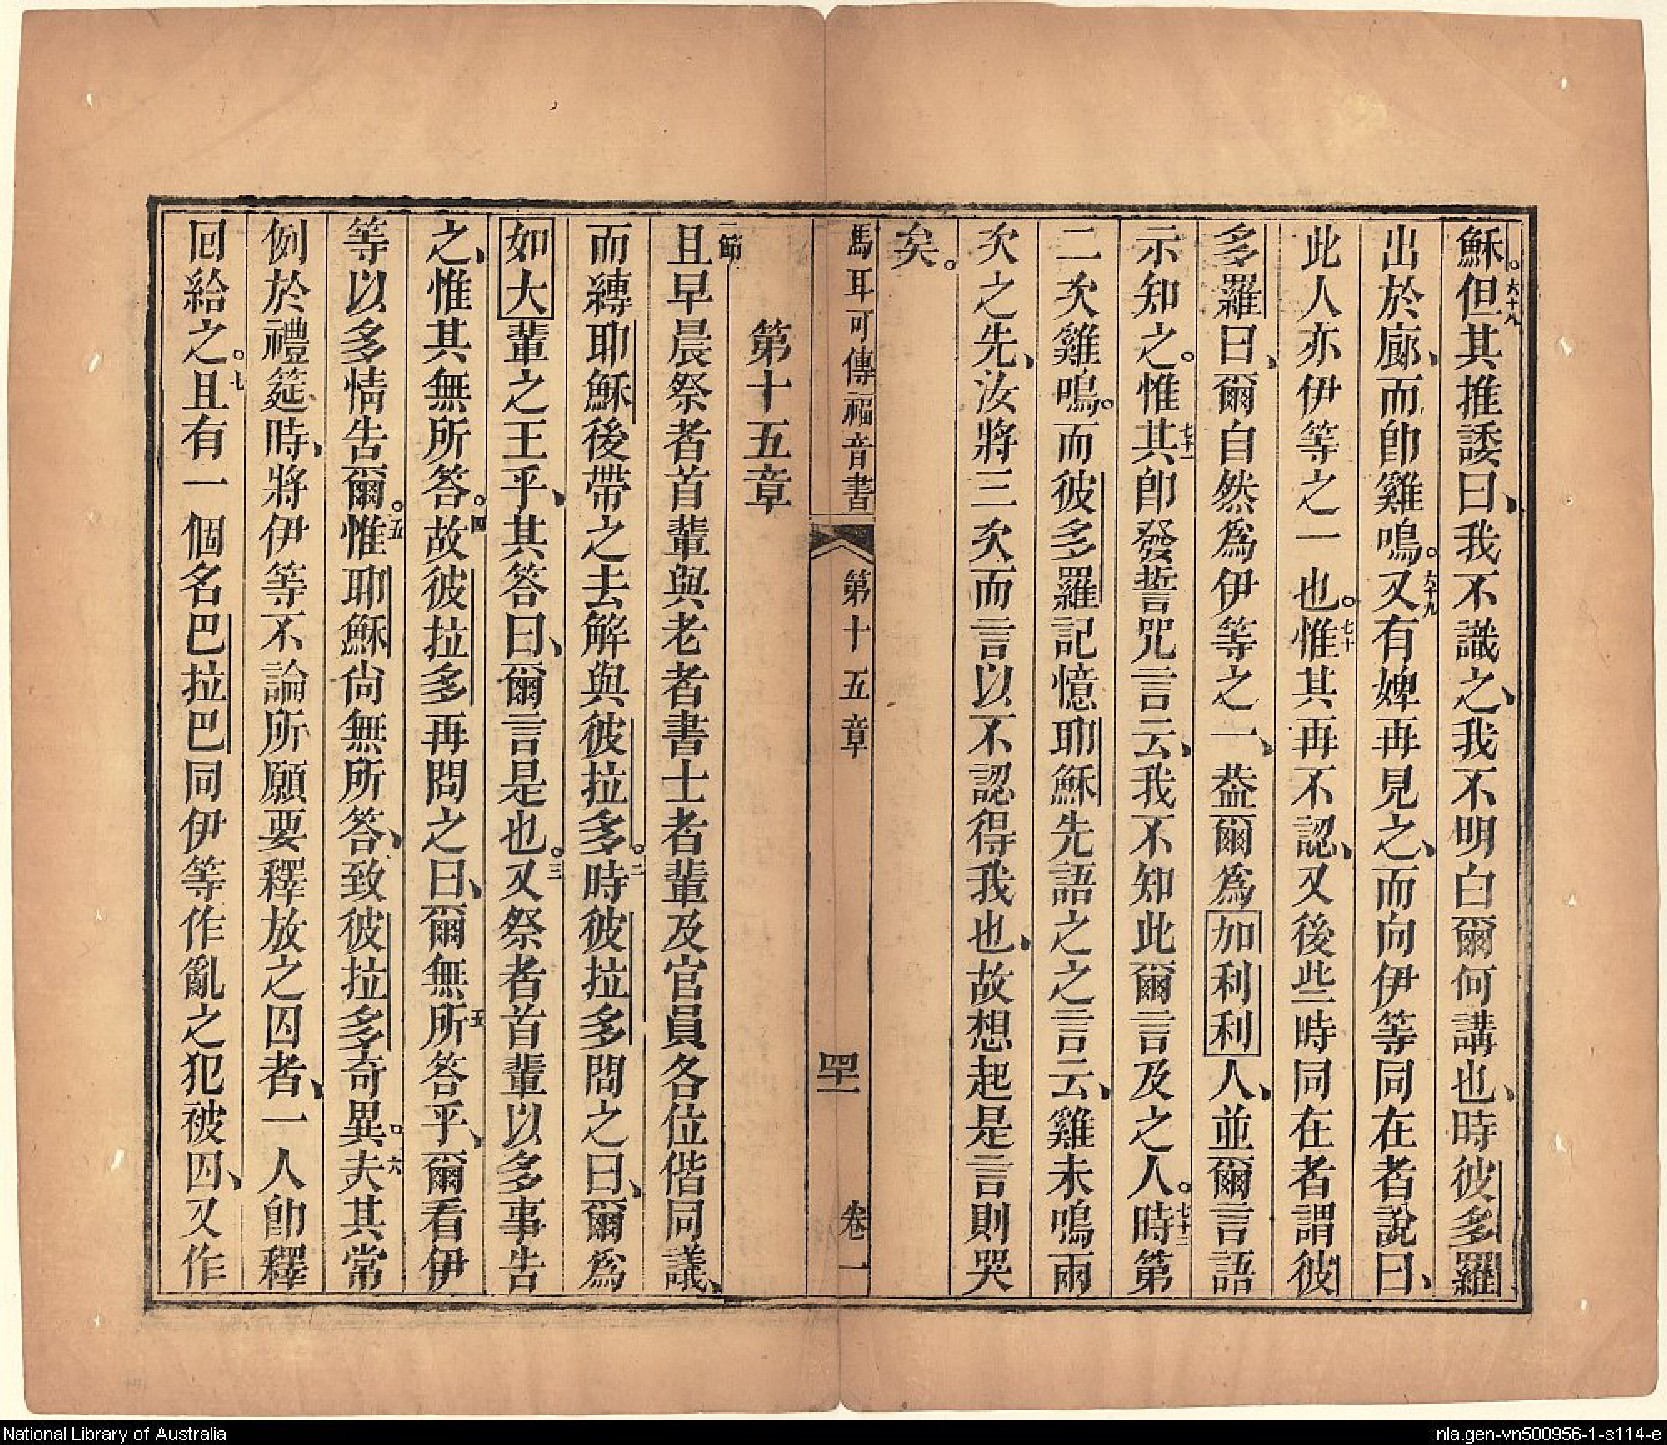 穌。六十八但其推諉曰、我不識之、我不明白爾何講也、時彼多羅
出於廊、而卽雞鳴。六十九又有婢再見之、而向伊等同在者說曰、
此人亦伊等之一也。七十惟其再不認、又後些時同在者謂彼
多羅曰、爾自然爲伊等之一、葢爾爲加利利人、並爾言語
示知之。七十一惟其卽發誓咒言云、我不知此爾言及之人。七十二時第
二次雞鳴。而彼多羅記憶耶穌先語之之言云、雞未鳴兩
次之先、汝將三次而言以不認得我也、故想起是言則哭
矣。
馬耳可傳福音書 第十五章 四十一 卷一
第十五章
一節且早晨祭者首輩與老者書士者輩及官員各位偕同議、
而縛耶穌後帶之去解與彼拉多。二時彼拉多問之曰、爾爲
如大輩之王乎、其答曰、爾言是也。三又祭者首輩以多事告
之、惟其無所答。四故彼拉多再問之曰、爾無所五答乎、爾看伊
等以多情告爾。五惟耶穌尙無所答、致彼拉多奇異。六夫其常
例於禮筵時、將伊等不論所願要釋放之囚者、一人卽釋
回給之。七且有一個名巴拉巴同伊等作亂之犯被囚、又作
National Library of Australia
nla.gen-vn500956-1-s114-e